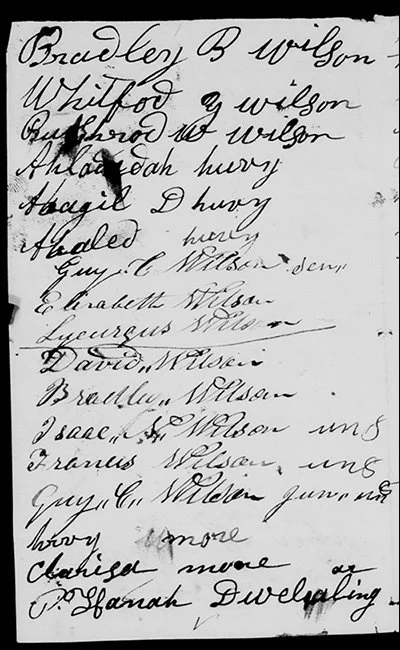 Bradley B wilson
Whitfod y wilson
Rushrod W wilson
Ahladidah huvy
Abagil D huvy
Abaled huvy
Guy „C„ Wilson sen„
Elisabeth Wilson
Lycurgus Wilson
David„ Wilson
Bradley„ Wilson
Isaac„ S„ Wilson ung
Francis Wilson ung
Guy„ C„ Wilson jun„
hvvy more
Clarisa more